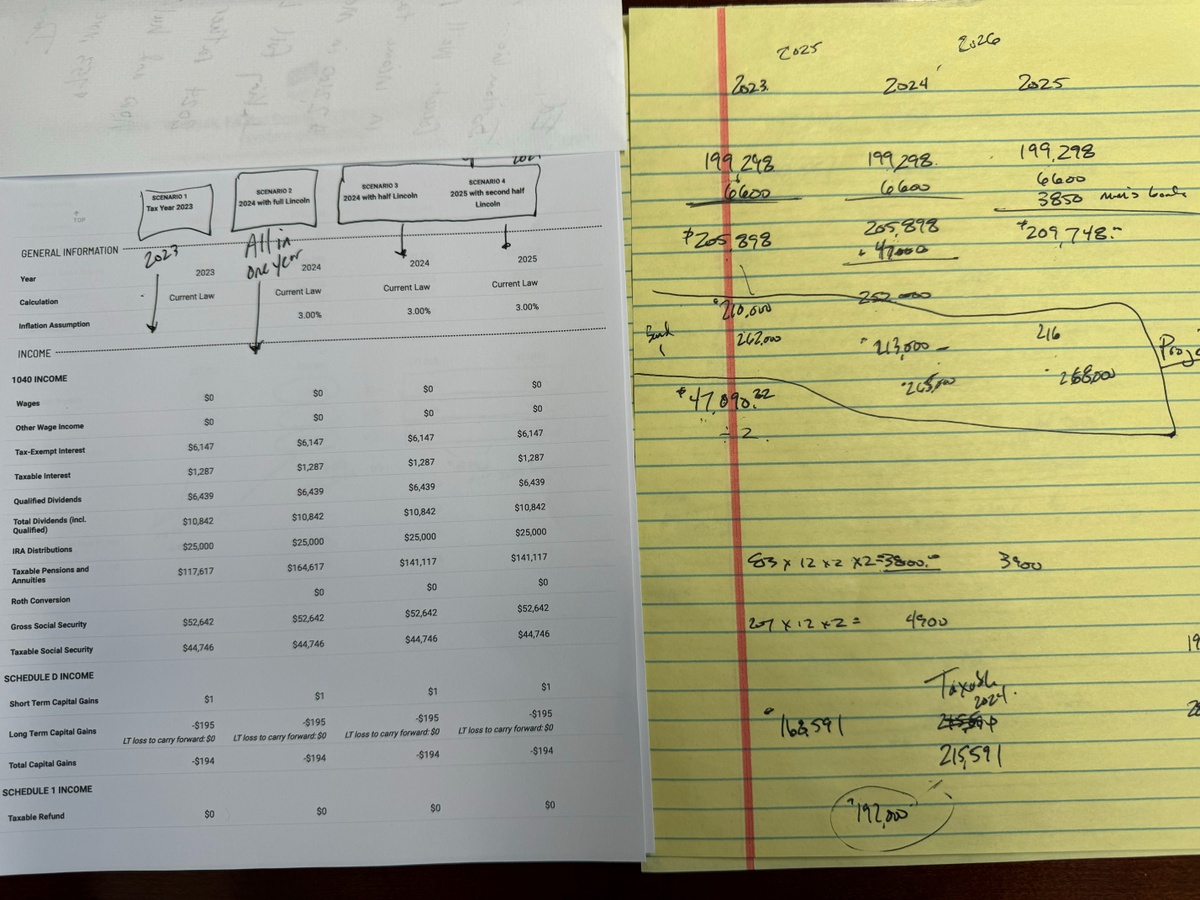 SCENARIO 1 SCENARIO 2 SCENARIO 3 SCENARIO 4
Tax Year 2023 2024 with full Lincoln 2024 with half Lincoln 2025 with second half Lincoln
TOP
GENERAL INFORMATION
2023 All in one year
Year 2023 2024 2024 2025
Calculation Current Law Current Law Current Law Current Law
Inflation Assumption 3.00% 3.00% 3.00%
INCOME
1040 INCOME
Wages $0 $0 $0 $0
Other Wage Income $0 $0 $0 $0
Tax-Exempt Interest $6,147 $6,147 $6,147 $6,147
Taxable Interest $1,287 $1,287 $1,287 $1,287
Qualified Dividends $6,439 $6,439 $6,439 $6,439
Total Dividends (incl. Qualified) $10,842 $10,842 $10,842 $10,842
IRA Distributions $25,000 $25,000 $25,000 $25,000
Taxable Pensions and Annuities $117,617 $164,617 $141,117 $141,117
Roth Conversion $0 $0 $0
Gross Social Security $52,642 $52,642 $52,642 $52,642
Taxable Social Security $44,746 $44,746 $44,746 $44,746
SCHEDULE D INCOME
Short Term Capital Gains $1 $1 $1 $1
Long Term Capital Gains -$195 -$195 -$195 -$195
LT loss to carry forward: $0 LT loss to carry forward: $0 LT loss to carry forward: $0 LT loss to carry forward: $0
Total Capital Gains -$194 -$194 -$194 -$194
SCHEDULE 1 INCOME
Taxable Refund $0 $0 $0 $0
2025 2026
2023 2024 2025
199,298 199,298 199,298
6600 6600 6600
3850
$205,898 205,898 $209,748.-
+ 47000
252,000
210,000
262,000 213,000 - 216
265,000 268,000
$47,090.22
÷ 2
83 x 12 x 2 x 2 = 3800.- 3900
207 x 12 x 2 = 4900
Taxable
2024
168,591
215,591
192,000